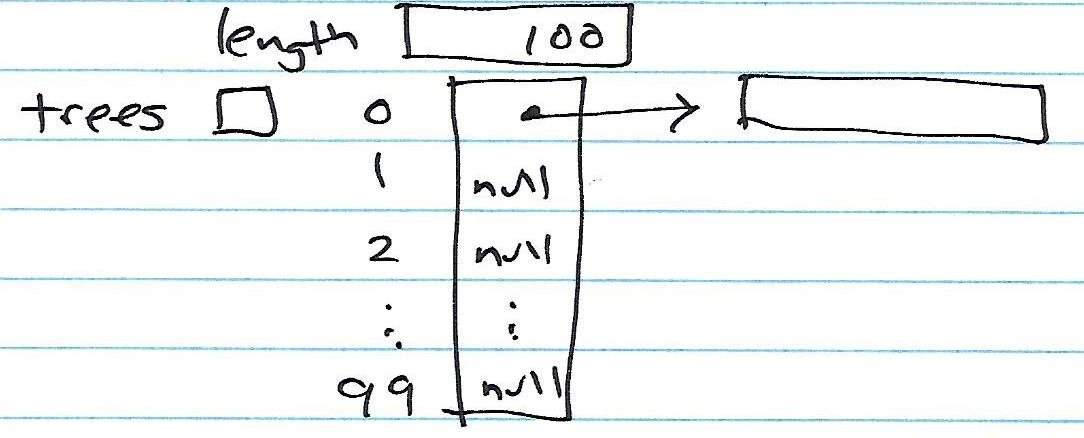 length 100
trees 0
1 null
2 null
⋮ ⋮
99 null